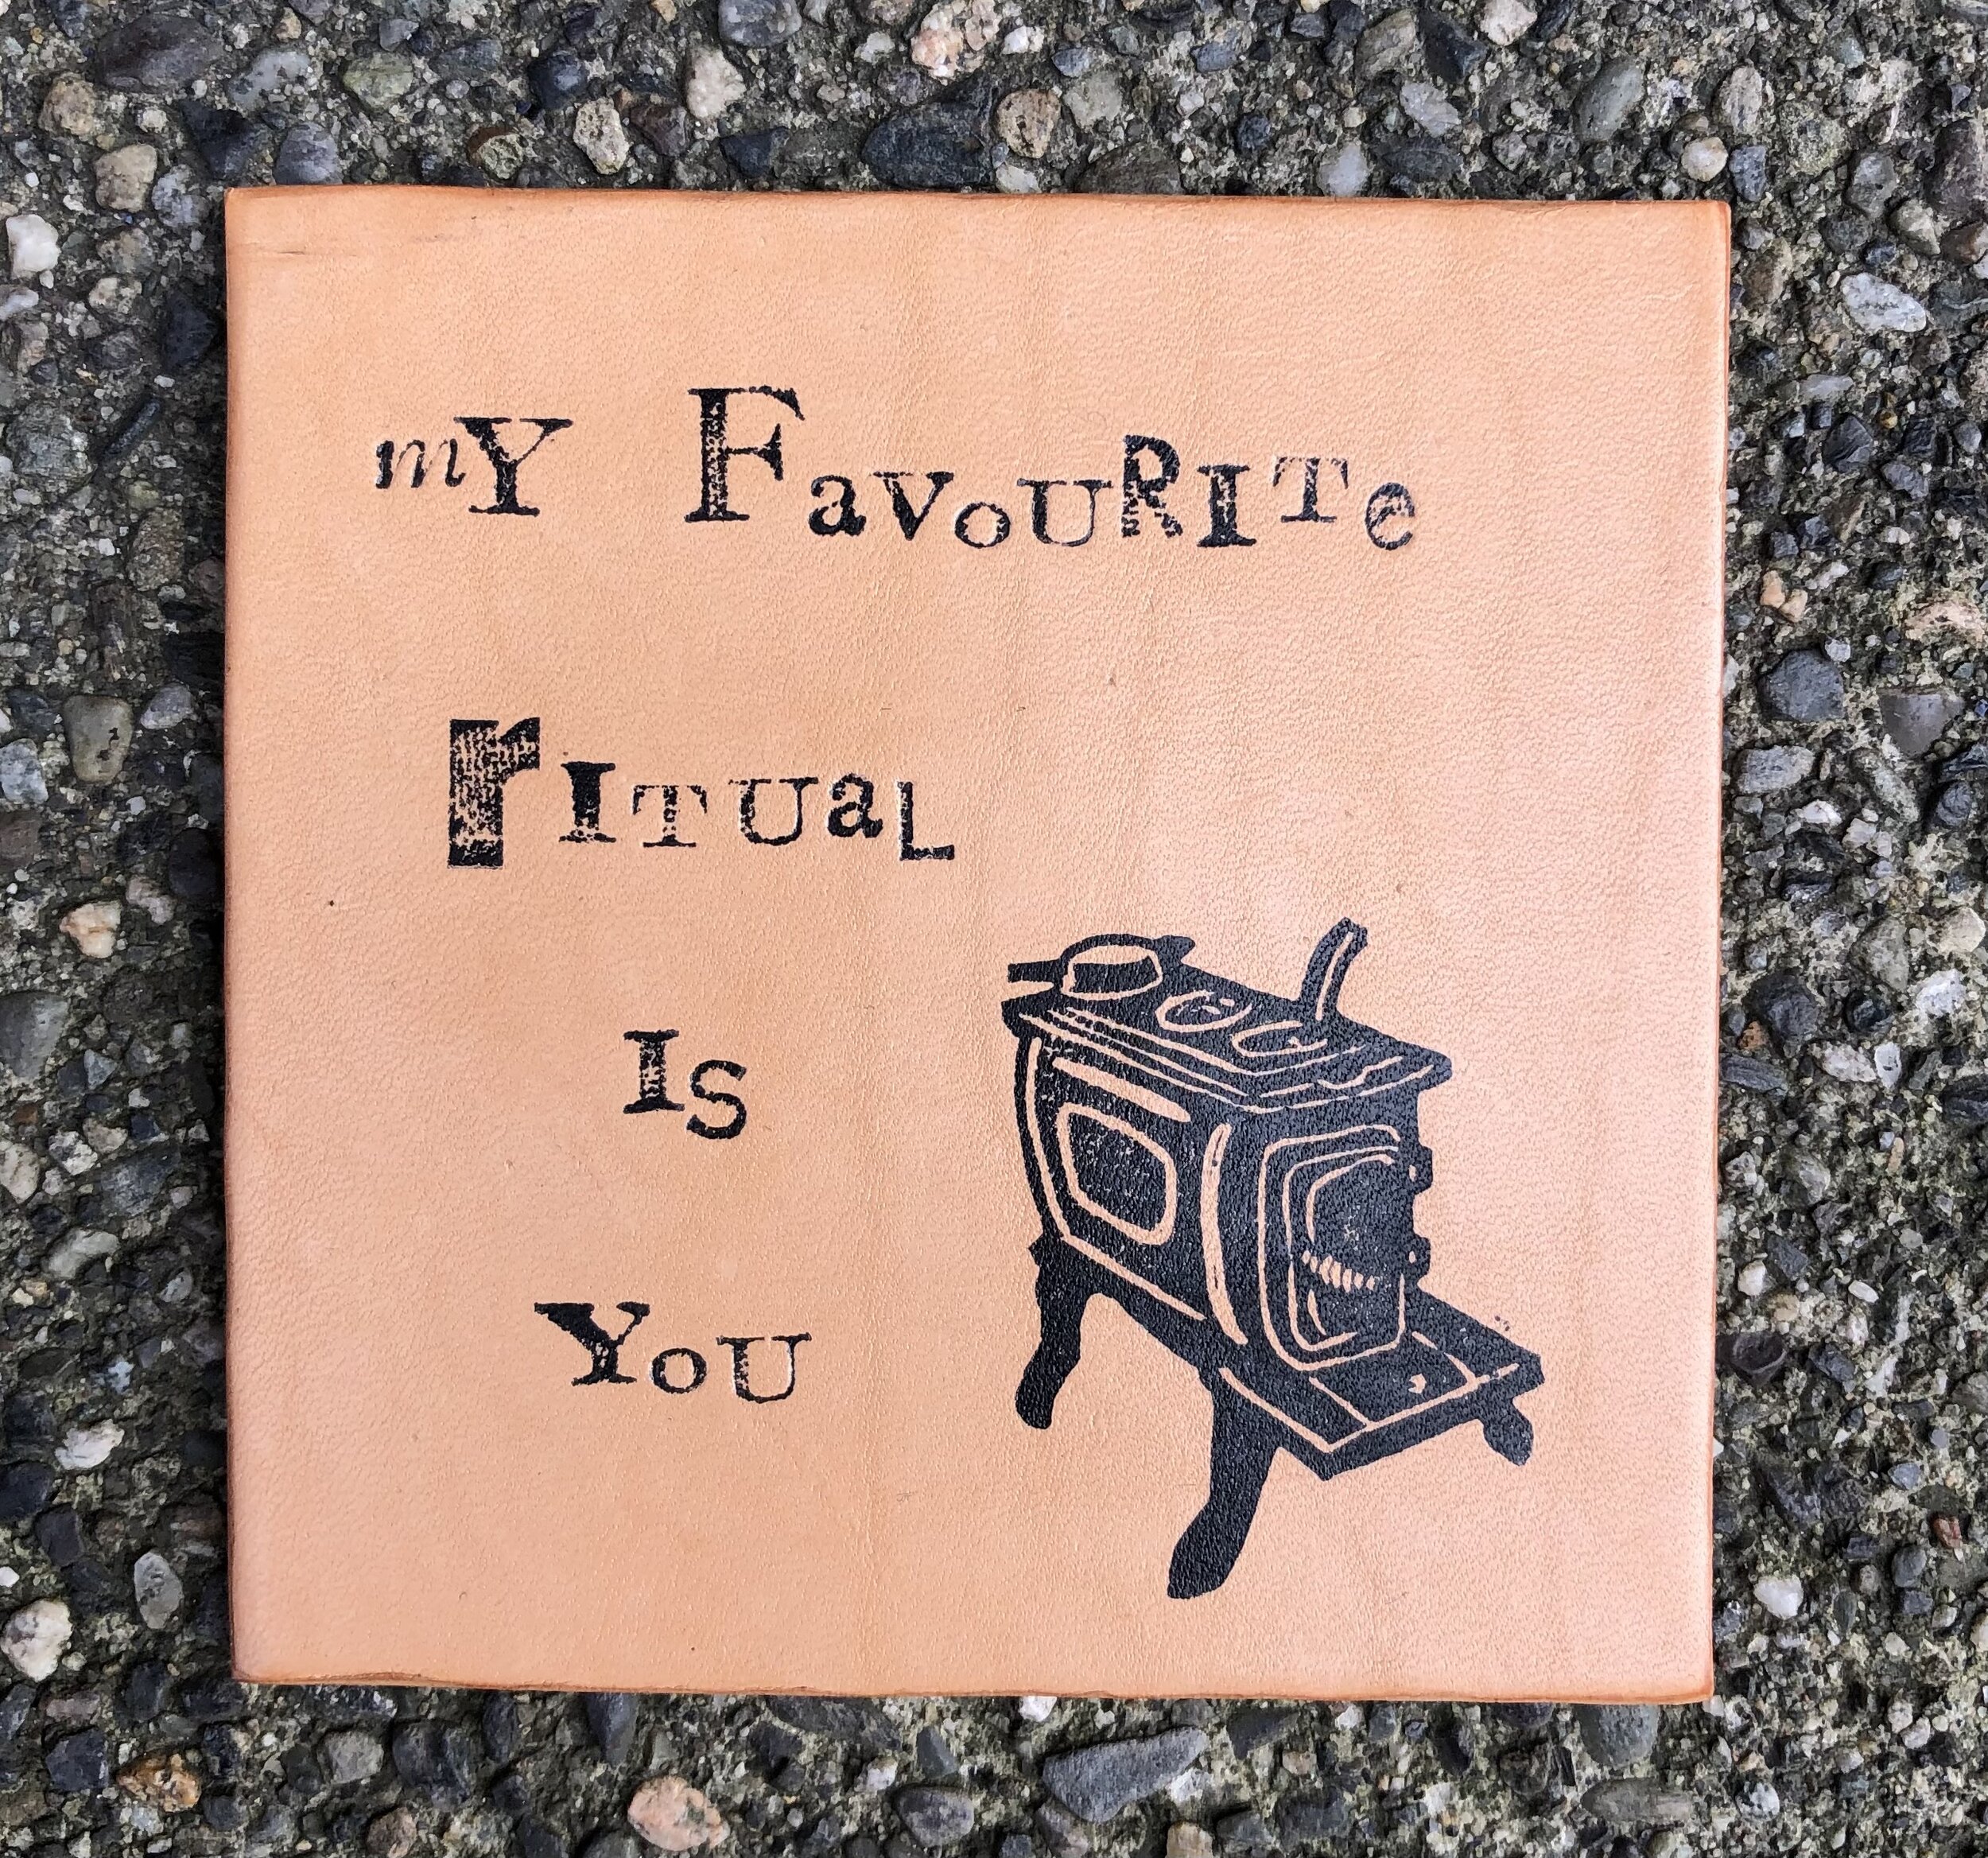 mY FavoURITe
rITUaL
Is
YoU